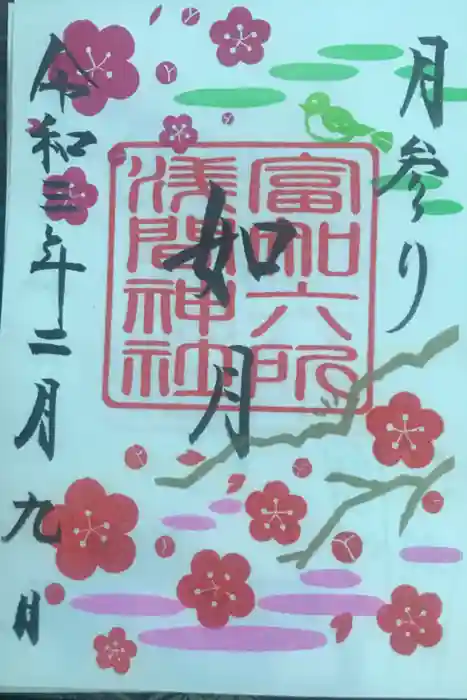 月参り
富知六所
浅間神社
如月
令和三年二月九日